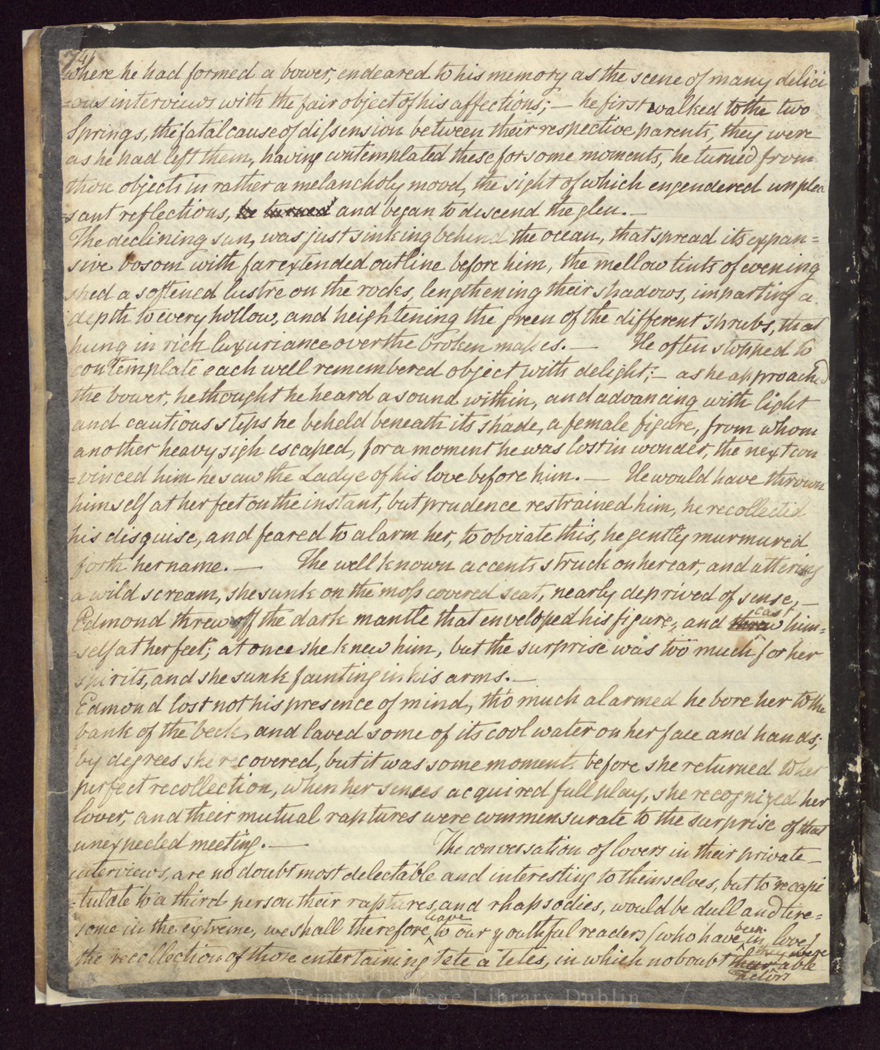 74
where he had formed a bower, endeared to his memory as the scene of many delici
=ous interviews with the fair object of his affections; — he first walked to the two
Springs, the fatal cause of dissension between their respective parents, they were
as he had left them, having contemplated these for some moments, he turned from
those objects in rather a melancholy mood, the sight of which engendered unplea
=sant reflections, he turned and began to descend the glen. —
The declining sun, was just sinking behind the ocean, that spread its expan=
sive bosom with far extended outline before him, the mellow tints of evening
shed a softened lustre on the rocks, lengthening their shadows, imparting a
depth to every hollow, and heightening the green of the different shrubs, that
hung in rich luxuriance over the broken masses. — He often stopped to
contemplate each well remembered object with delight; — as he approached
the bower, he thought he heard a sound within, and advancing with light
and cautious steps he beheld beneath its shade, a female figure, from whom
another heavy sigh escaped, for a moment he was lost in wonder, the next con
=vinced him he saw the Ladye of his love before him. — He would have thrown
himself at her feet on the instant, but prudence restrained him, he recollected
his disguise, and feared to alarm her, to obviate this, he gently murmured
forth her name. — The well known accents struck on her ear, and uttering
a wild scream, she sunk on the moss covered seat, nearly deprived of sense, —
Edmond threw off the dark mantle that enveloped his figure, and threw cast him=
=self at her feet; at once she knew him, but the surprise was too much for her
spirits, and she sunk fainting in his arms. —
Edmond lost not his presence of mind, tho' much alarmed he bore her to the
bank of the beck, and laved some of its cool water on her face and hands;
by degrees she recovered, but it was some moments before she returned to her
perfect recollection, when her senses acquired full play, she recognized her
lover, and their mutual raptures were commensurate to the surprise of that
unexpected meeting. — The conversation of lovers in their private
interviews, are no doubt most delectable and interesting to themselves, but to recapi
=tulate to a third person their raptures, and rhapsodies, would be dull and tire=
some in the extreme, we shall therefore leave to our youthful readers (who have been in love)
the recollection of those entertaining Tete a tetes, in which no doubt they were able
actors
Trinity College Library Dublin